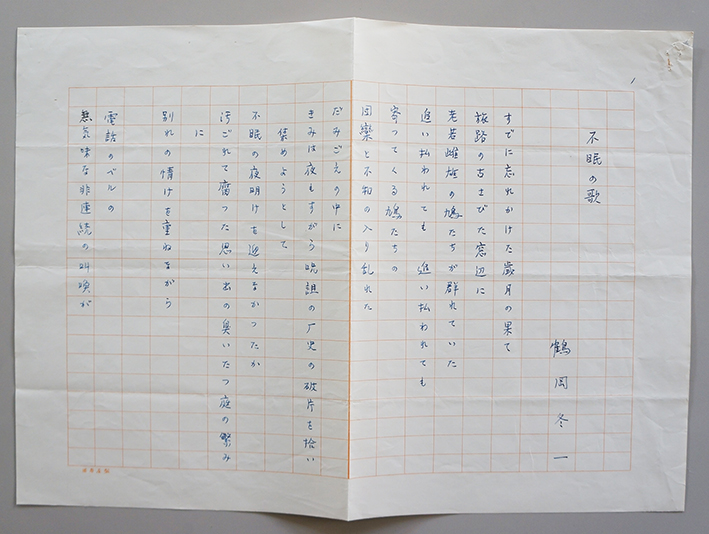 1
不眠の歌
鶴岡冬一
すでに忘れかけた歳月の果て
旅路の古さびた窓辺に
老若雌雄の鳩たちが群れていた
追い払われても 追い払われても
寄ってくる鳩たちの
団欒と不和の入り乱れた
だみごえの中に
きみは夜もすがら 呪詛の厂史の破片を拾い
集めようとして
不眠の夜明けを迎えなかったか
汚ごれて腐った思い出の臭いたつ庭の繁み
に
別れの情けを重ねながら
電話のベルの
無気味な非連続の叫喚が